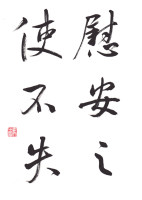 慰安之
使不失